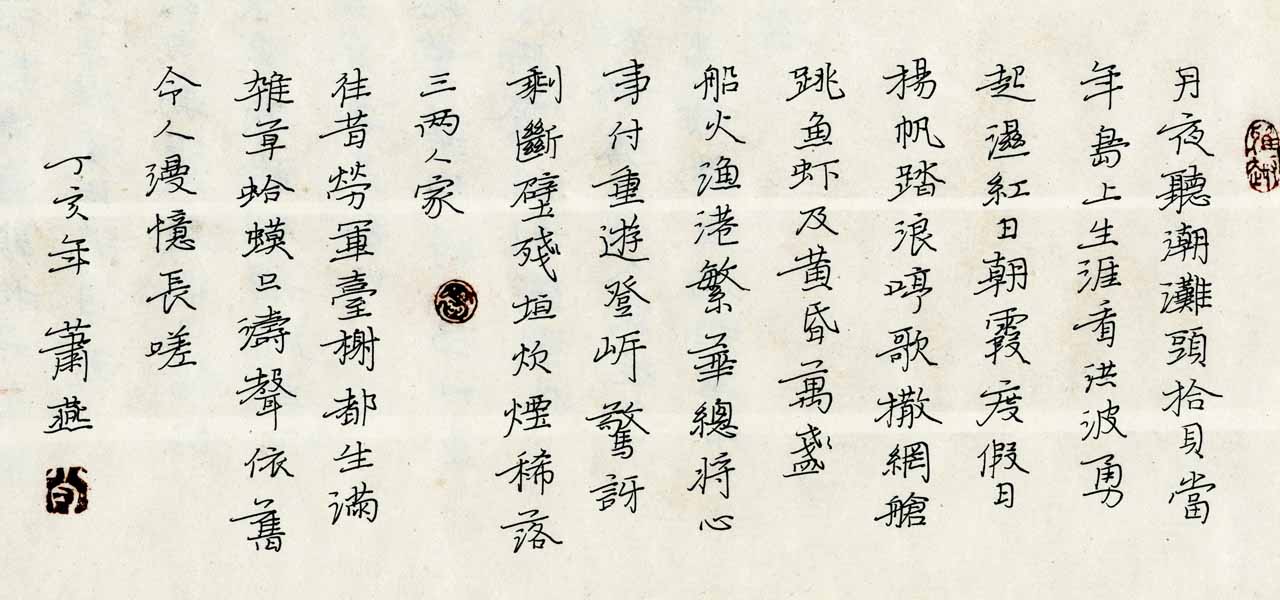 月夜聽潮灘頭拾貝當
年島上生涯看洪波勇
起濕紅日朝霞度假日
揚帆踏浪哼歌撒網艙
跳魚虾及黄昏萬盞
船火漁港繁華總将心
事付重遊登岍驚訝
剩斷壁残垣炊煙稀落
三两人家
往昔勞軍臺榭都生满
雑草蛤蟆只濤聲依舊
令人漫憶長嗟
丁亥年 蕭燕